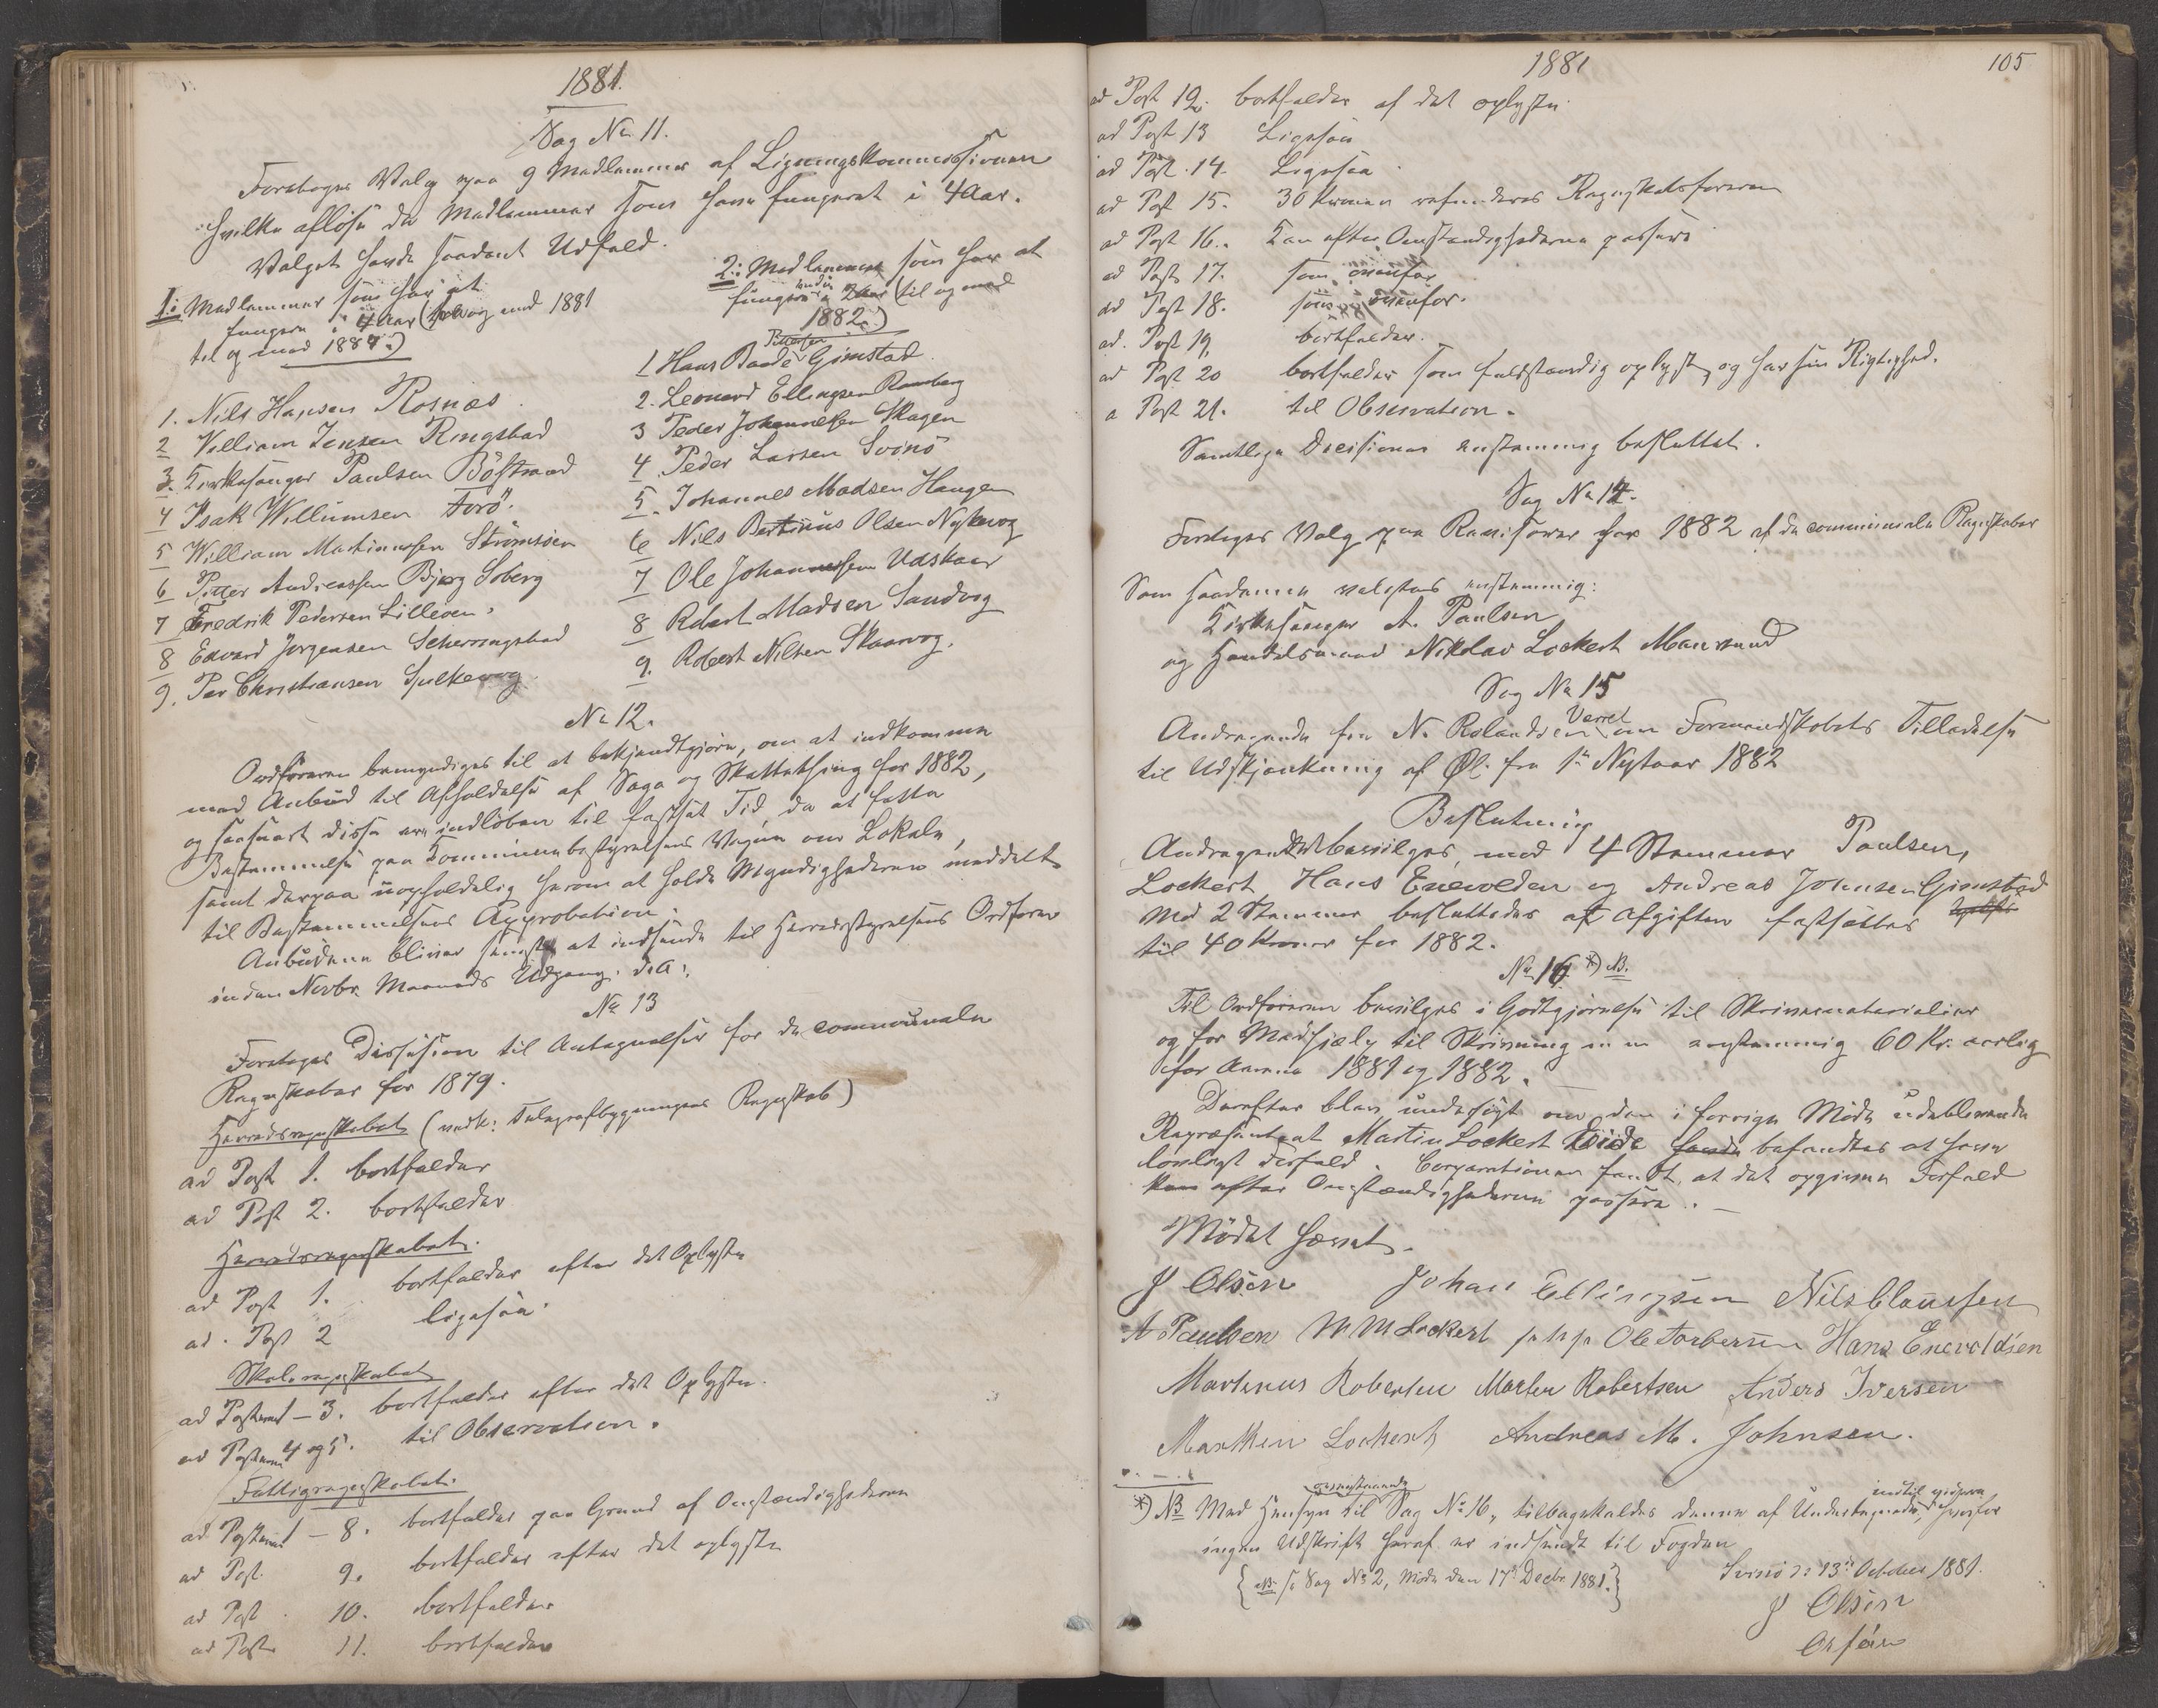 1881.
Sag No 11.
Foretages Valg paa 9 Medlemmer af Ligningskommissionen
hvilke afløse de Medlemmer som have fungeret i 4 Aar.
Valget havde saadant Udfald.
1: Medlemmer som har at
fungere i 4 Aar (fra og med 1881
til og med 1884.)
1. Nils Hansen Rosnæs.
2 Villiam Jensen Ringstad
3. Kirkesanger Paulsen Böstrand
4 Isak Willumsen Forö.
5 William Martinussen Strömsöen
6 Peter Andreassen Bjerg Soberg
7 Fredrik Pedersen Lilleöen.
8 Edvard Jörgensen Scherringstad
9. Per Christiansen Spilkevog
2: Medlemmer som har at
fungere endnu 2 Aar (til og med
1882.)
1 Hans Baade Pettersen Gimstad.
2. Leonard Ellingsen Ramberg
3 Peder Johannesen Skagen
4 Peder Larsen Svinö
5. Johannes Madsen Haugen
6 Nils Bertinus Olsen Nykvog
7 Ole Johannessen Udskaar
8 Robert Madsen Sandvog
9. Robert Nilsen Skaarvog.
No 12.
Ordföreren bemyndiges til at bekjendtgjöre, om at indkomme
med Anbud til Afholdelse af Sage og Skattething for 1882,
og saasnart disse ere indlöbne til fastsat Tid, da at fatte
Bestemmelse paa Kommunebestyrelsens Vegne om Lokale,
samt derpaa uopholdelig herom at holde Myndighederne meddelt
til Bestemmelsens Approbation.
Anbudene bliver senest at indsende til Herredsstyrelsens Ordförer
inden Novbr Maaneds Udgang. d. A.
No 13
Foretages Decision til Antegnelser for de communale
Regnskaber for 1879.
Herredsregnskabet (vedk: Telegrafbygningens Regnskab)
ad Post 1. bortfalder
ad Post 2. bortfalder
Herredsregnskabet.
ad Post 1. bortfalder efter det Oplyste
ad. Post 2 ligesaa.
Skoleregnskabet
ad Posterne 1 – 3. bortfalder efter det Oplyste.
ad Posterne 4 og 5. til Observation.
Fattigregnskabet.
ad Posterne 1 – 8. bortfalder paa Grund af Omstændighederne
ad Post. 9. bortfalder efter det oplyste
ad Post. 10. bortfalder
ad Post 11. bortfalder
1881
105
ad Post 12. bortfalder af det oplyste.
ad Post 13 Ligesaa
ad Post. 14. Ligesaa
ad Post 15. 30 Kroner refunderes Regnskabsføreren
ad Post 16. Kan efter Omstændighederne passere
ad Post 17. som ovenfor
ad Post 18. som ovenfor.
ad. Post 19. bortfalder.
ad Post 20 bortfalder som fuldstændig oplyst, og har sin Rigtighed.
a Post 21. til Observation.
Samtlige Decisioner enstemmig besluttet.
Sag No 14.
Foretages Valg paa Revisorer for 1882 af de communale Regnskaber
Som saadanne valgtes enstemmig:
Kirkesanger A. Paulsen
og Handelsmand Nikolai Lockert Mausund
Sag No 15
Andragende fra N. Rolandsen Værret om Formandskabets Tilladelse
til Udskjænkning af Øl. fra 1te Nytaar 1882
Beslutning
Andragendet bevilges, med 4 Stemmer Paulsen,
Lockert, Hans Enevoldsen og Andreas Johnsen Gimstad
Mod 2 Stemmer besluttedes at Afgiften fastsættes
til 40 Kroner for 1882.
No 16 *) NB.
Til Ordföreren bevilges i Godtgjörelse til Skrivematerialier
og for Medhjælp til Skrivning m m enstemmig 60 Kr. aarlig
for Aarene 1881 og 1882.
Derefter blev undersögt om den i forrige Möde udeblevende
Repræsentant Martin Lockert Titide havde befandtes at have
lovligt Forfald. Corporationen fandt, at det opgivne Forfald
kan efter Omstændighederne passere. –
Mödet hævet.
J Olsen Johan Ellingsen Nils Claussen
A Paulsen M M Lockert Ole Torbersen Hans Enevoldsen
Martinus Robertsen Morten Robertsen Anders Iversen
Marthin Lockert Andreas M. Johnsen.
*) NB Med Hensyn til ovenstaaende Sag No 16, tilbagekaldes denne af Undertegnede, indtil videre hvorfor
ingen Udskrift heraf er indsendt til Fogden
Svinö d: 13de October 1881.
{NB. se Sag No 2, Möde den 17de Decbr 1881.}
J Olsen
Ordförer